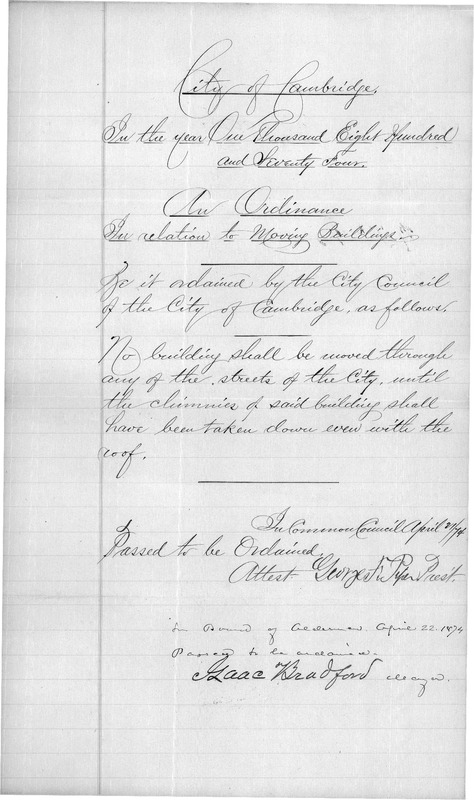 City of Cambridge.
In the year One Thousand Eight Hundred
and Seventy Four.
An Ordinance
In relation to Moving Buildings.
Be it ordained by the City Council
of the City of Cambridge, as follows.
No building shall be moved through
any of the streets of the City, until
the chimnies of said building shall
have been taken down even with the
roof.
In Common Council April
Passed to be Ordained.
Attest George F. Piper Prest.
In Board of Aldermen April 22. 1874
Passed to be ordained.
Isaac Bradford Mayor.